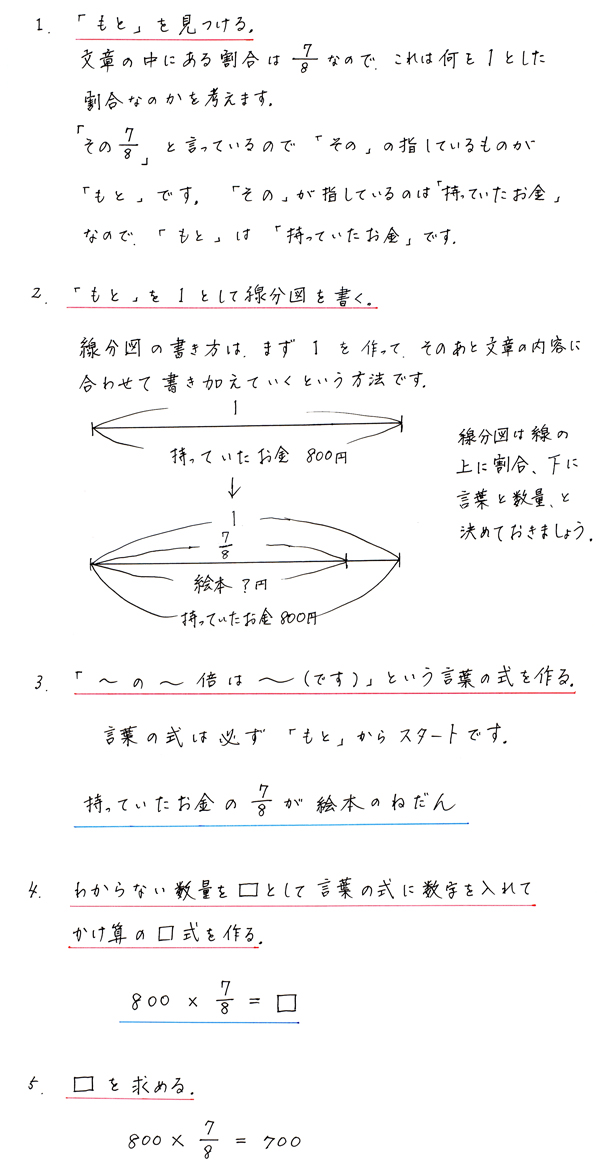 1. 「もと」を見つける。
文章の中にある割合は 7/8 なので、これは何を1とした
割合なのかを考えます。
「その 7/8」と言っているので「その」の指しているものが
「もと」です。「その」が指しているのは「持っていたお金」
なので、「もと」は「持っていたお金」です。
2. 「もと」を1として線分図を書く。
線分図の書き方は、まず1を作って、そのあと文章の内容に
合わせて書き加えていくという方法です。
1
持っていたお金 800円
↓
1
7/8
絵本 ?円
持っていたお金 800円
線分図は線の
上に割合、下に
言葉と数量、と
決めておきましょう。
3. 「〜の〜倍は〜(です)」という言葉の式を作る。
言葉の式は必ず「もと」からスタートです。
持っていたお金の 7/8 が絵本のねだん
4. わからない数量を□として言葉の式に数字を入れて
かけ算の□式を作る。
800 × 7/8 = □
5. □を求める。
800 × 7/8 = 700